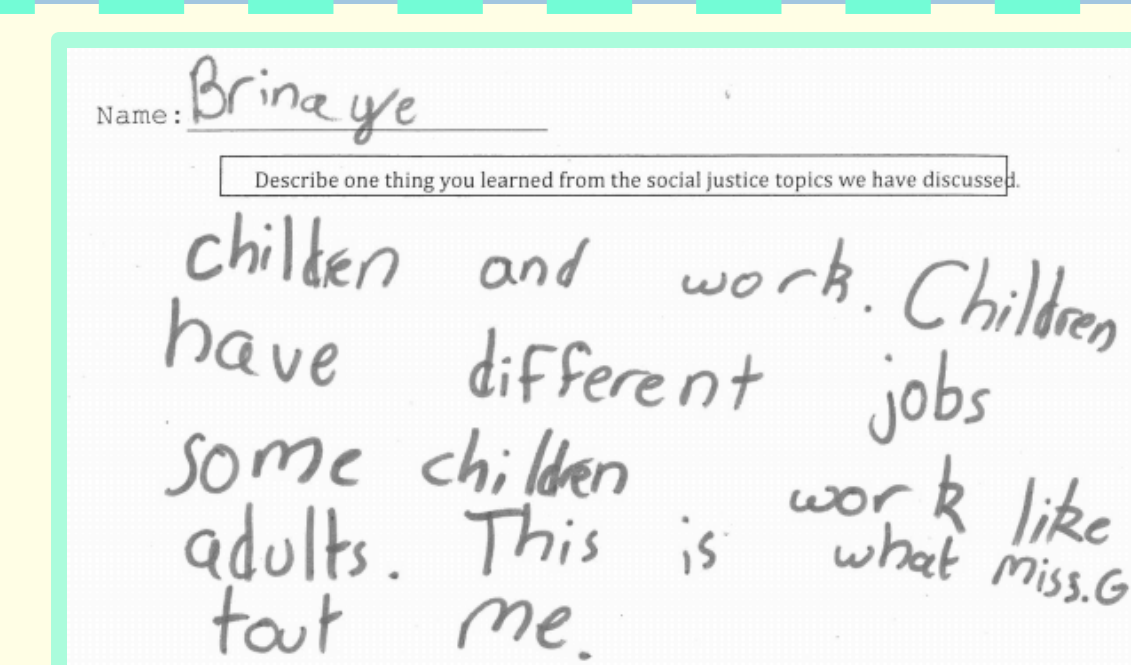 Name: Brinaye
Describe one thing you learned from the social justice topics we have discussed.
childen and work. Children
have different jobs
some childen work like
adults. This is what Miss.G
tout me.